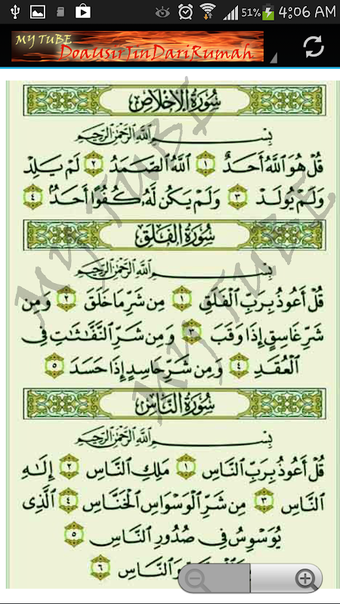 51% 4:06 AM
MY TUBE
DoaUsirJinDariRumah
سُورَةُ الإِخْلَاصِ
بِسْمِ اللَّهِ الرَّحْمَٰنِ الرَّحِيمِ
قُلْ هُوَ اللَّهُ أَحَدٌ ١ اللَّهُ الصَّمَدُ ٢ لَمْ يَلِدْ
وَلَمْ يُولَدْ ٣ وَلَمْ يَكُن لَّهُ كُفُوًا أَحَدٌ ٤
سُورَةُ الفَلَقِ
بِسْمِ اللَّهِ الرَّحْمَٰنِ الرَّحِيمِ
قُلْ أَعُوذُ بِرَبِّ الْفَلَقِ ١ مِن شَرِّ مَا خَلَقَ ٢ وَمِن
شَرِّ غَاسِقٍ إِذَا وَقَبَ ٣ وَمِن شَرِّ النَّفَّاثَاتِ فِي
الْعُقَدِ ٤ وَمِن شَرِّ حَاسِدٍ إِذَا حَسَدَ ٥
سُورَةُ النَّاسِ
بِسْمِ اللَّهِ الرَّحْمَٰنِ الرَّحِيمِ
قُلْ أَعُوذُ بِرَبِّ النَّاسِ ١ مَلِكِ النَّاسِ ٢ إِلَٰهِ
النَّاسِ ٣ مِن شَرِّ الْوَسْوَاسِ الْخَنَّاسِ ٤ الَّذِي
يُوَسْوِسُ فِي صُدُورِ النَّاسِ ٥
وَالنَّاسِ ٦
MY TUBE
MY TUBE